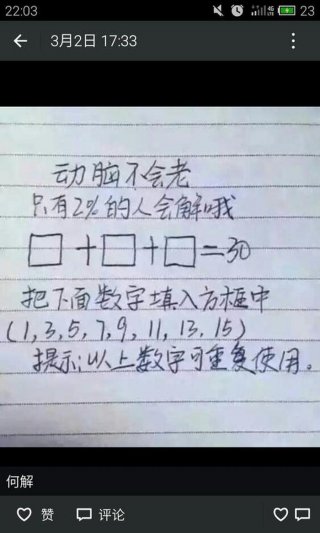 22:03
23
3月2日 17:33
动脑不会老
只有2%的人会解哦
□+□+□=30
把下面数字填入方框中
(1,3,5,7,9,11,13,15)
提示:以上数字可重复使用。
何解
赞
评论